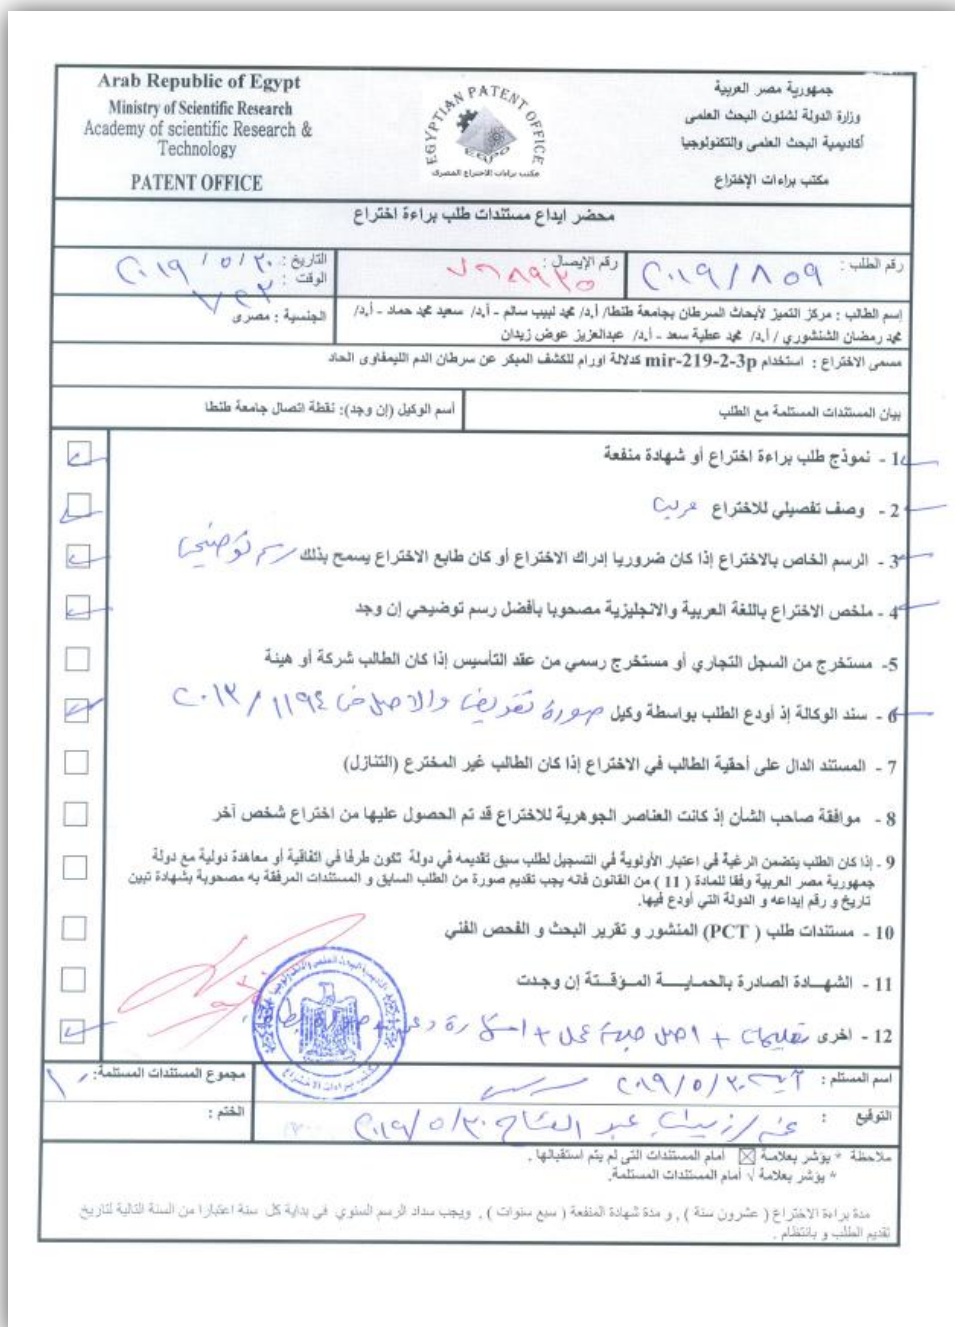 Arab Republic of Egypt
Ministry of Scientific Research
Academy of scientific Research &
Technology
PATENT OFFICE
EGYPTIAN PATENT OFFICE
EGPO
مكتب براءات الاختراع المصرى
جمهورية مصر العربية
وزارة الدولة لشئون البحث العلمى
أكاديمية البحث العلمى والتكنولوجيا
مكتب براءات الإختراع
محضر ايداع مستندات طلب براءة اختراع
رقم الطلب : ٢٠١٩/٨٥٩
رقم الإيصال :
التاريخ : ٢٠١٩/٥/٣٠
الوقت :
إسم الطالب : مركز التميز لأبحاث السرطان بجامعة طنطا/ أ.د/ محمد لبيب سالم - أ.د/ سعيد محمد حماد - أ.د/
محمد رمضان الشنشوري / أ.د/ محمد عطية سعد - أ.د/ عبدالعزيز عوض زيدان
الجنسية : مصرى
مسمى الاختراع : استخدام mir-219-2-3p كدلالة اورام للكشف المبكر عن سرطان الدم الليمفاوى الحاد
بيان المستندات المستلمة مع الطلب
أسم الوكيل (إن وجد): نقطة اتصال جامعة طنطا
1 - نموذج طلب براءة اختراع أو شهادة منفعة
2 - وصف تفصيلي للاختراع عربى
3 - الرسم الخاص بالاختراع إذا كان ضروريا إدراك الاختراع أو كان طابع الاختراع يسمح بذلك رسم توضيحى
4 - ملخص الاختراع باللغة العربية والانجليزية مصحوبا بأفضل رسم توضيحي إن وجد
5- مستخرج من السجل التجاري أو مستخرج رسمي من عقد التأسيس إذا كان الطالب شركة أو هيئة
6 - سند الوكالة إذ أودع الطلب بواسطة وكيل صورة تفويض والاصل فى ١١٩٤/٢٠١٣
7 - المستند الدال على أحقية الطالب في الاختراع إذا كان الطالب غير المخترع (التنازل)
8 - موافقة صاحب الشأن إذ كانت العناصر الجوهرية للاختراع قد تم الحصول عليها من اختراع شخص آخر
9 - إذا كان الطلب يتضمن الرغبة في اعتبار الأولوية في التسجيل لطلب سبق تقديمه في دولة تكون طرفا في اتفاقية أو معاهدة دولية مع دولة
جمهورية مصر العربية وفقا للمادة ( 11 ) من القانون فانه يجب تقديم صورة من الطلب السابق و المستندات المرفقة به مصحوبة بشهادة تبين
تاريخ و رقم إيداعه و الدولة التي أودع فيها.
10 - مستندات طلب ( PCT) المنشور و تقرير البحث و الفحص الفني
11 - الشهـــادة الصادرة بالحمايـــــة المـؤقــتة إن وجدت
12 - اخرى تعليمات + اصل
اسم المستلم : آية ٢٠١٩/٥/٣٠
مجموع المستندات المستلمة:
التوقيع : عبد الفتاح ٢٠١٩/٥/٣٠
الختم :
ملاحظة * يؤشر بعلامة ☒ أمام المستندات التى لم يتم استقبالها .
* يؤشر بعلامة √ أمام المستندات المستلمة.
مدة براءة الاختراع ( عشرون سنة ) , و مدة شهادة المنفعة ( سبع سنوات ) , ويجب سداد الرسم السنوي في بداية كل سنة اعتبارا من السنة التالية لتاريخ
تقديم الطلب و بانتظام .